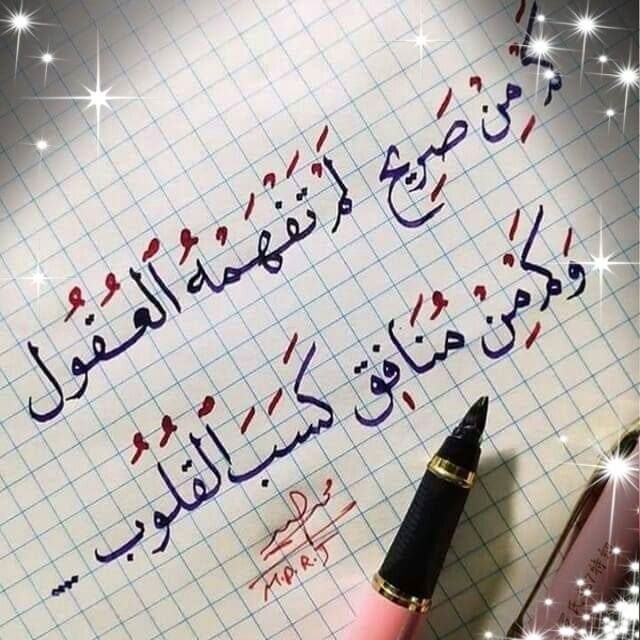 كَمْ مِنْ صَرِيحٍ لَمْ تَفْهَمْهُ الْعُقُولُ
وَكَمْ مِنْ مُنَافِقٍ كَسَبَ الْقُلُوبُ...
M.P.R.J